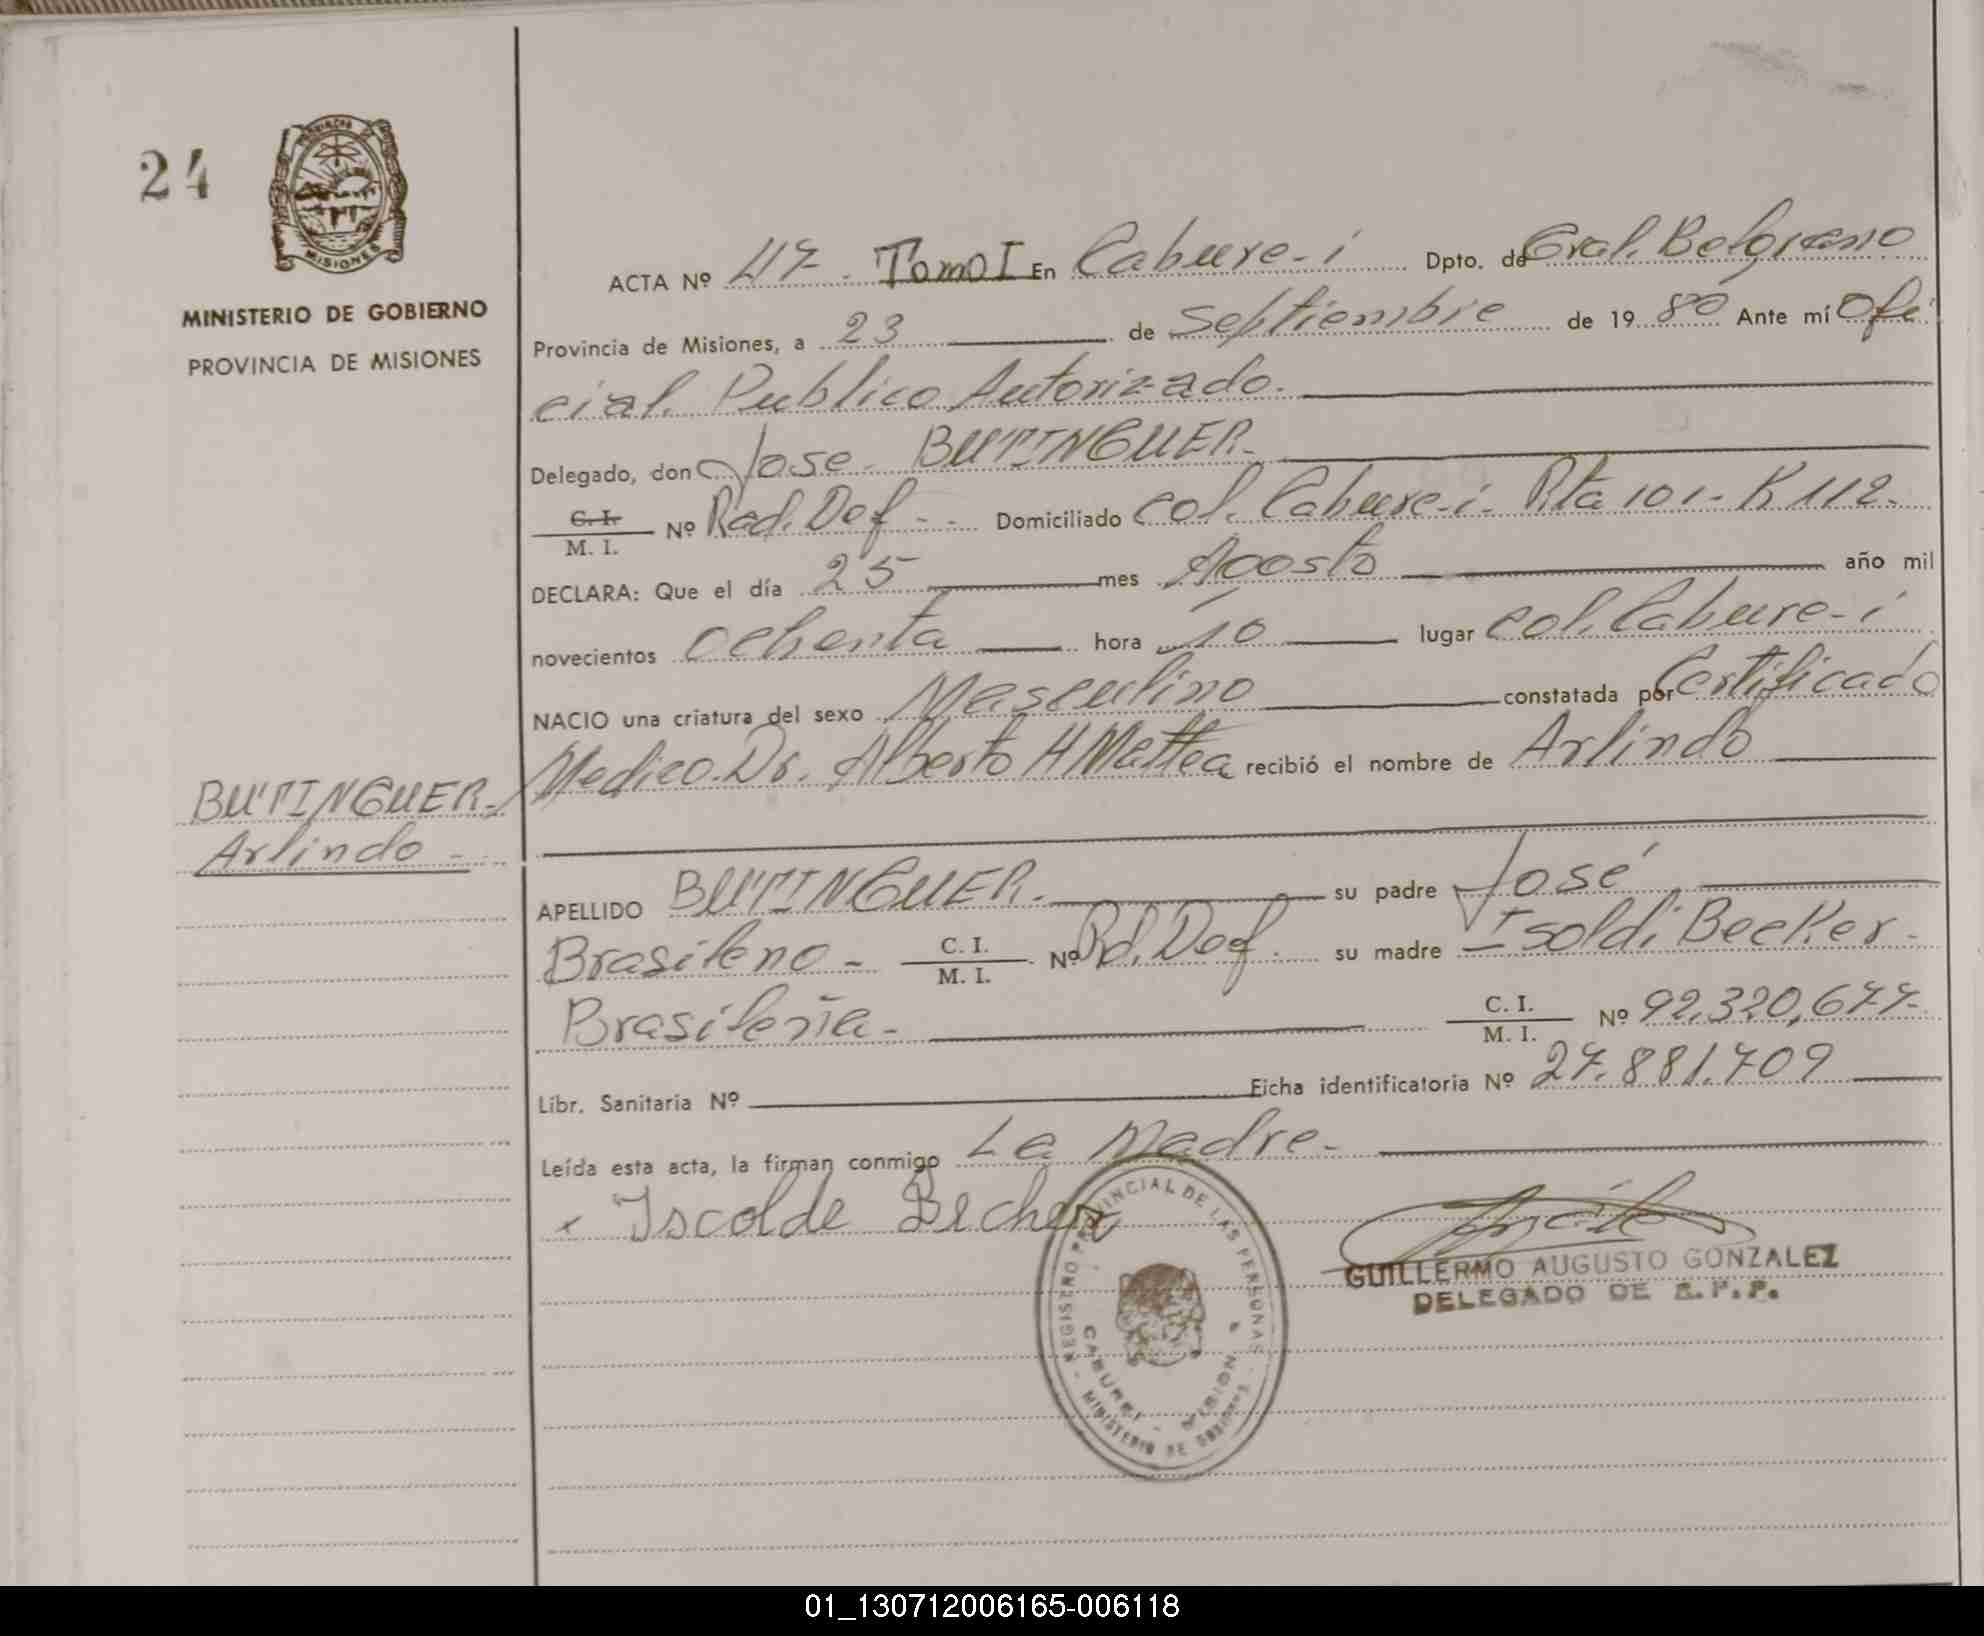 24
PROVINCIA DE
MISIONES
MINISTERIO DE GOBIERNO
PROVINCIA DE MISIONES
ACTA Nº 417 . Tomo I En Cabure-i Dpto. de Gral. Belgrano
Provincia de Misiones, a 23 de Septiembre de 19 80 Ante mí Ofi
cial. Publico Autorizado.
Delegado, don Jose. BUTINGUER.
C. I.
M. I. Nº Rad. Def. - - Domiciliado Col. Cabure-i- Rta 101- K 112.
DECLARA: Que el día 25 mes Agosto año mil
novecientos ochenta hora 10 lugar Col. Cabure-i
NACIO una criatura del sexo Masculino constatada por Certificado
Medico. Dr. Alberto H Mattea recibió el nombre de Arlindo
BUTINGUER.
Arlindo -
APELLIDO BUTINGUER. su padre José
Brasileno - C. I.
M. I. Nº Rd. Def. su madre Isoldi Becker-
Brasileña- C. I.
M. I. Nº 92.320,677-
Libr. Sanitaria Nº Ficha identificatoria Nº 27.881.709
Leída esta acta, la firman conmigo La Madre-
x Iscolde Becher
REGISTRO PROVINCIAL DE LAS PERSONAS
MINISTERIO DE GOBIERNO
CABUREI - MISIONES
GUILLERMO AUGUSTO GONZALEZ
DELEGADO DE R.P.P.
01_130712006165-006118